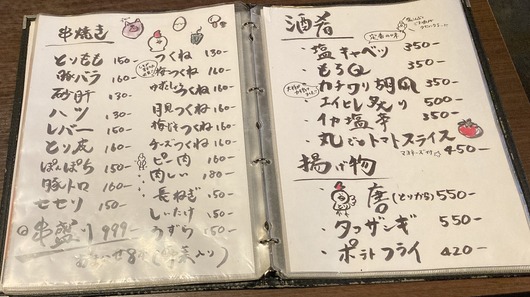 串焼き
とりもも 150-
豚バラ 160-
砂肝 130-
ハツ 130-
レバー 150-
とり皮 160-
ぼんぼち 150-
豚トロ 160-
セセリ 150-
串盛り 999-
つくね 130-
梅つくね 160-
月見つくね 180-
チーズつくね 190-
ピー肉 160-
肉しい 180-
長ねぎ 150-
しいたけ 150-
うずら 150-
酒肴
塩キャベツ 350-
もろQ 350-
カチワリ胡瓜 350-
エイヒレ炙り 500-
イカ塩辛 350-
丸ごとトマトスライス 450-
揚げ物
唐 (とりから) 550-
タツザンギ 550-
ポテトフライ 420-